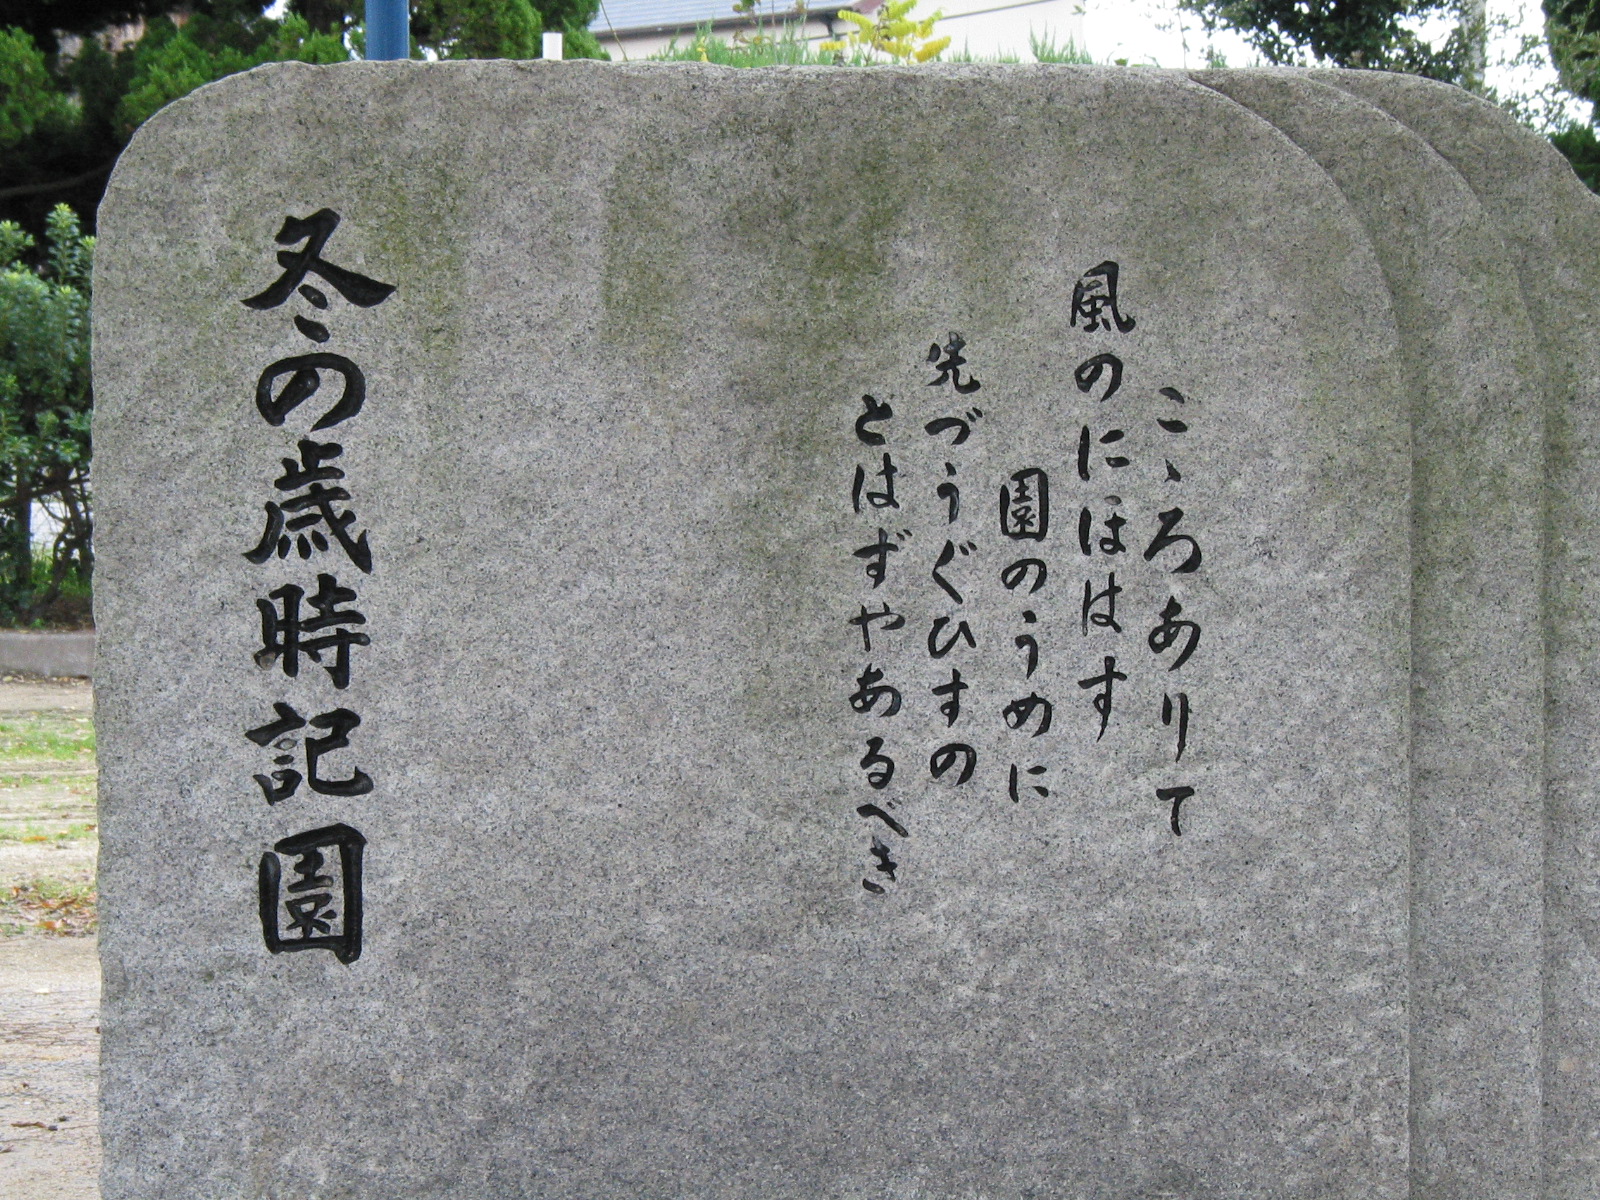 こゝろありて
風のにほはす
園のうめに
先づうぐひすの
とはずやあるべき
冬の歳時記園